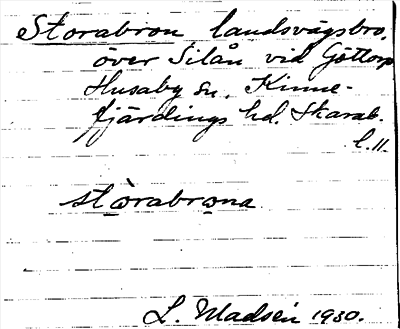 Storabron landsvägsbro,
över Silån vid Göttorp
Husaby sn. Kinne-
fjärdings hd. Skarab.
l. 11.
stòrabrona
L. Madsén 1930.